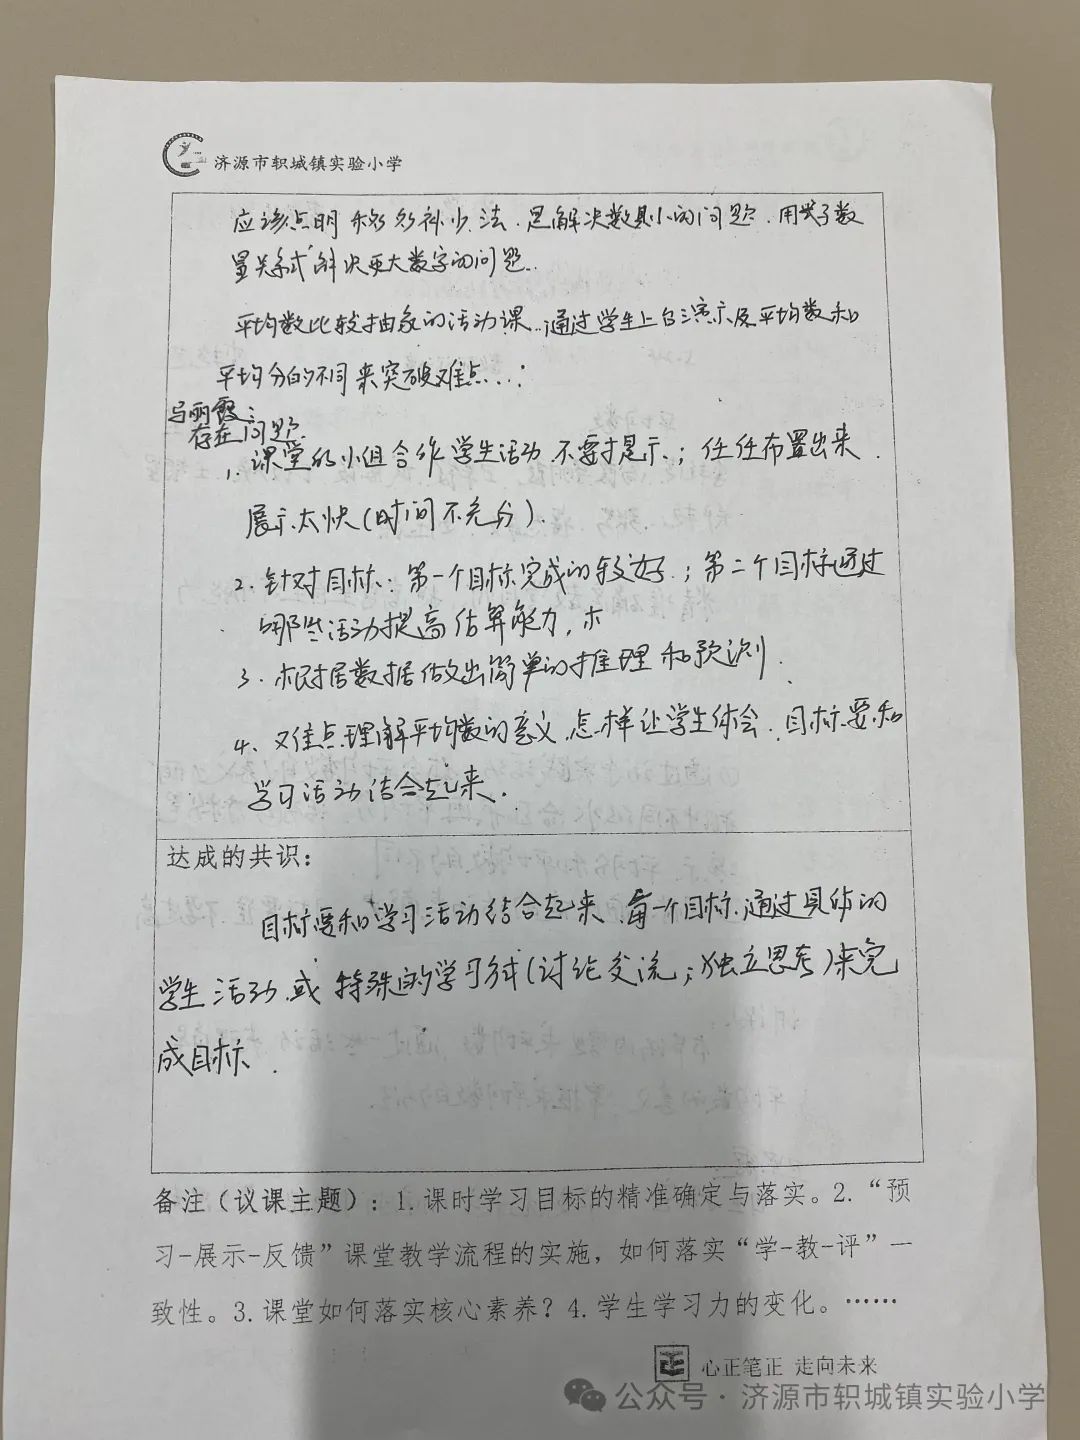 济源市轵城镇实验小学
应该点明移多补少法.是解决数具小的问题.用关于数
量关系式解决更大数字的问题.
平均数比较抽象的活动课..通过学生上台演示及平均数和
平均分的不同来突破难点...:
马丽霞:
存在问题
1. 课堂的小组合作学生活动不要提示;任任布置出来.
展示太快(时间不充分).
2. 针对目标:第一个目标完成的较好;第二个目标通过
哪些活动提高估算能力,
3. 根据数据做出简单的推理和预测.
4、难点理解平均数的意义.怎样让学生体会.目标要和
学习活动结合起来.
达成的共识:
目标要和学习活动结合起来.每一个目标.通过具体的
学生活动.或特殊的学习方式(讨论交流;独立思考)来完
成目标.
备注(议课主题):1.课时学习目标的精准确定与落实。2.“预
习-展示-反馈”课堂教学流程的实施,如何落实“学-教-评”一
致性。3.课堂如何落实核心素养?4.学生学习力的变化。……
正 心正笔正 走向未来
公众号·济源市轵城镇实验小学